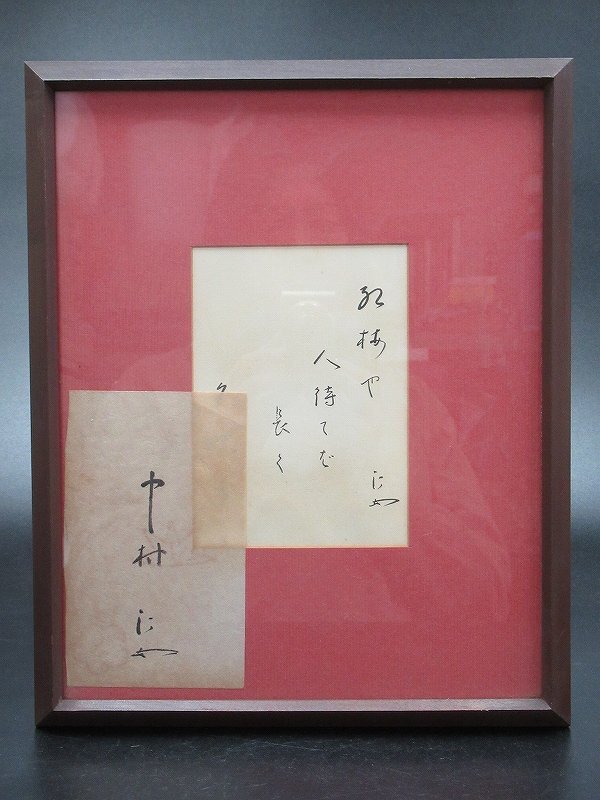 紅梅や
人待てば
長く
汀女
中村汀女